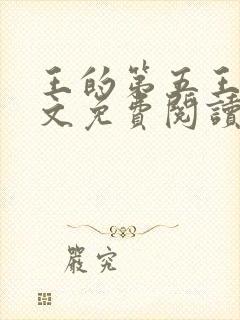 王的第五王
文免費閱讀
嚴究